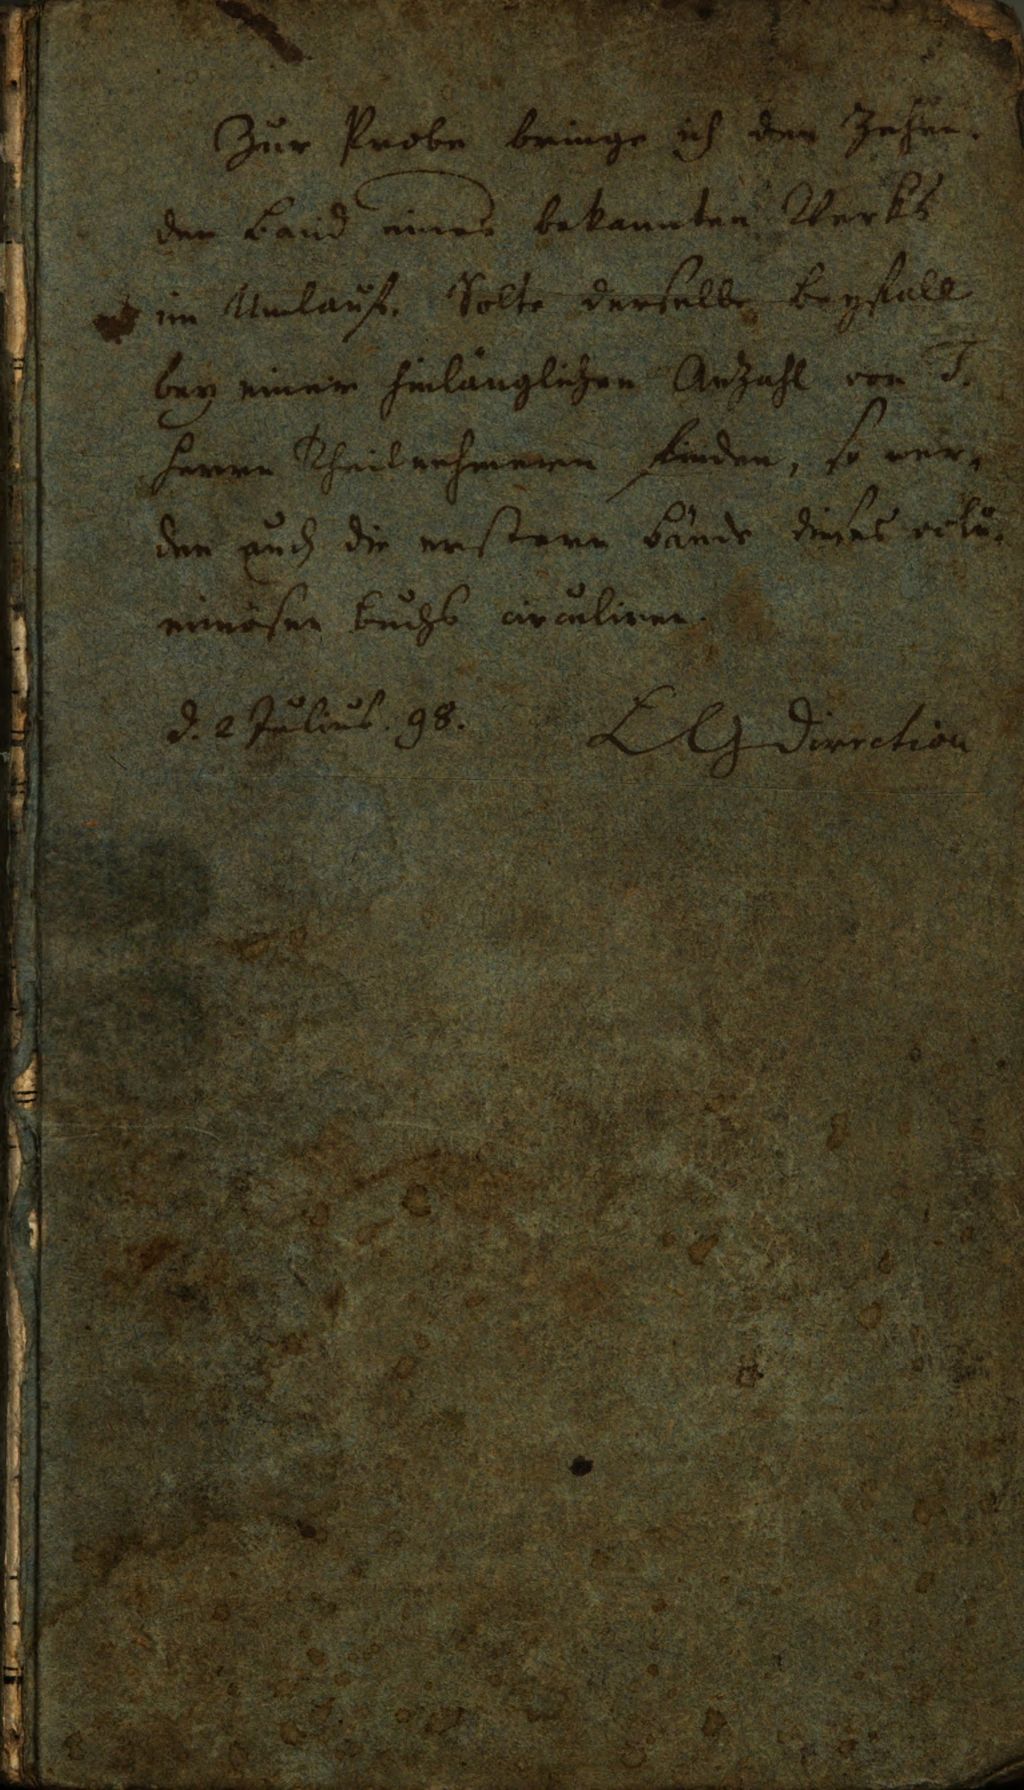 Zur Probe bringe ich den Zehen-
den Band eines bekannten Werks
im Umlauf. Solte derselbe Beyfall
bey einer hinlänglichen Anzahl von T.
Herrn Theilnehmern finden, so wer-
den auch die erstern Bände dieses volu-
minösen Buchs circuliren.
d. 2 Julius. 98. L G Direction